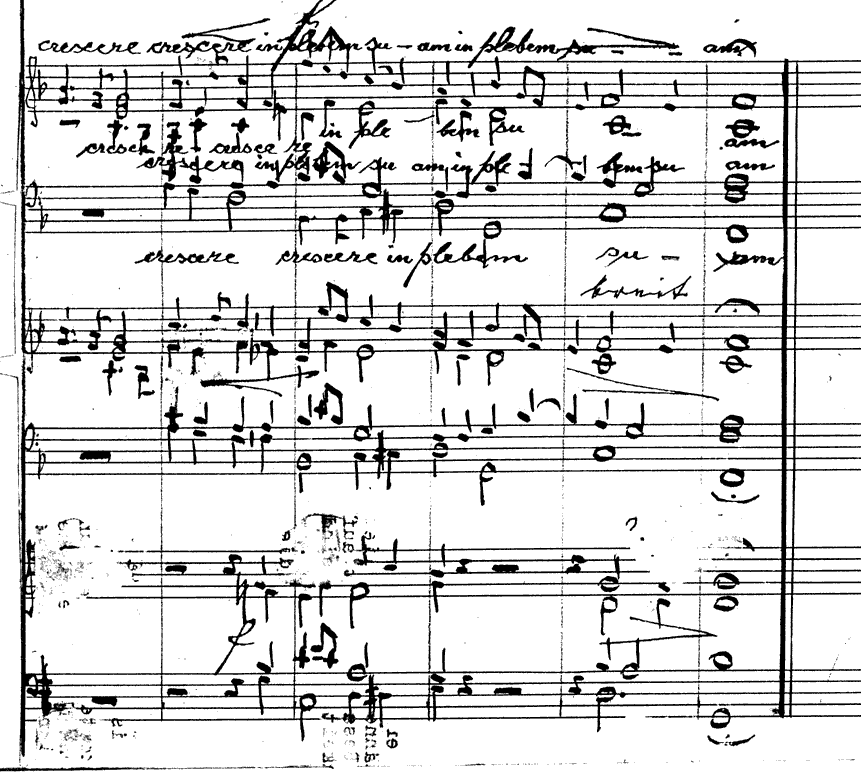 crescere crescere in plebem su - am in plebem su - - am
f
in ple - bem su
crescere crescere am
crescere in plebem su am, in ple - bem su am
crescere crescere in plebem su - am
breit
f